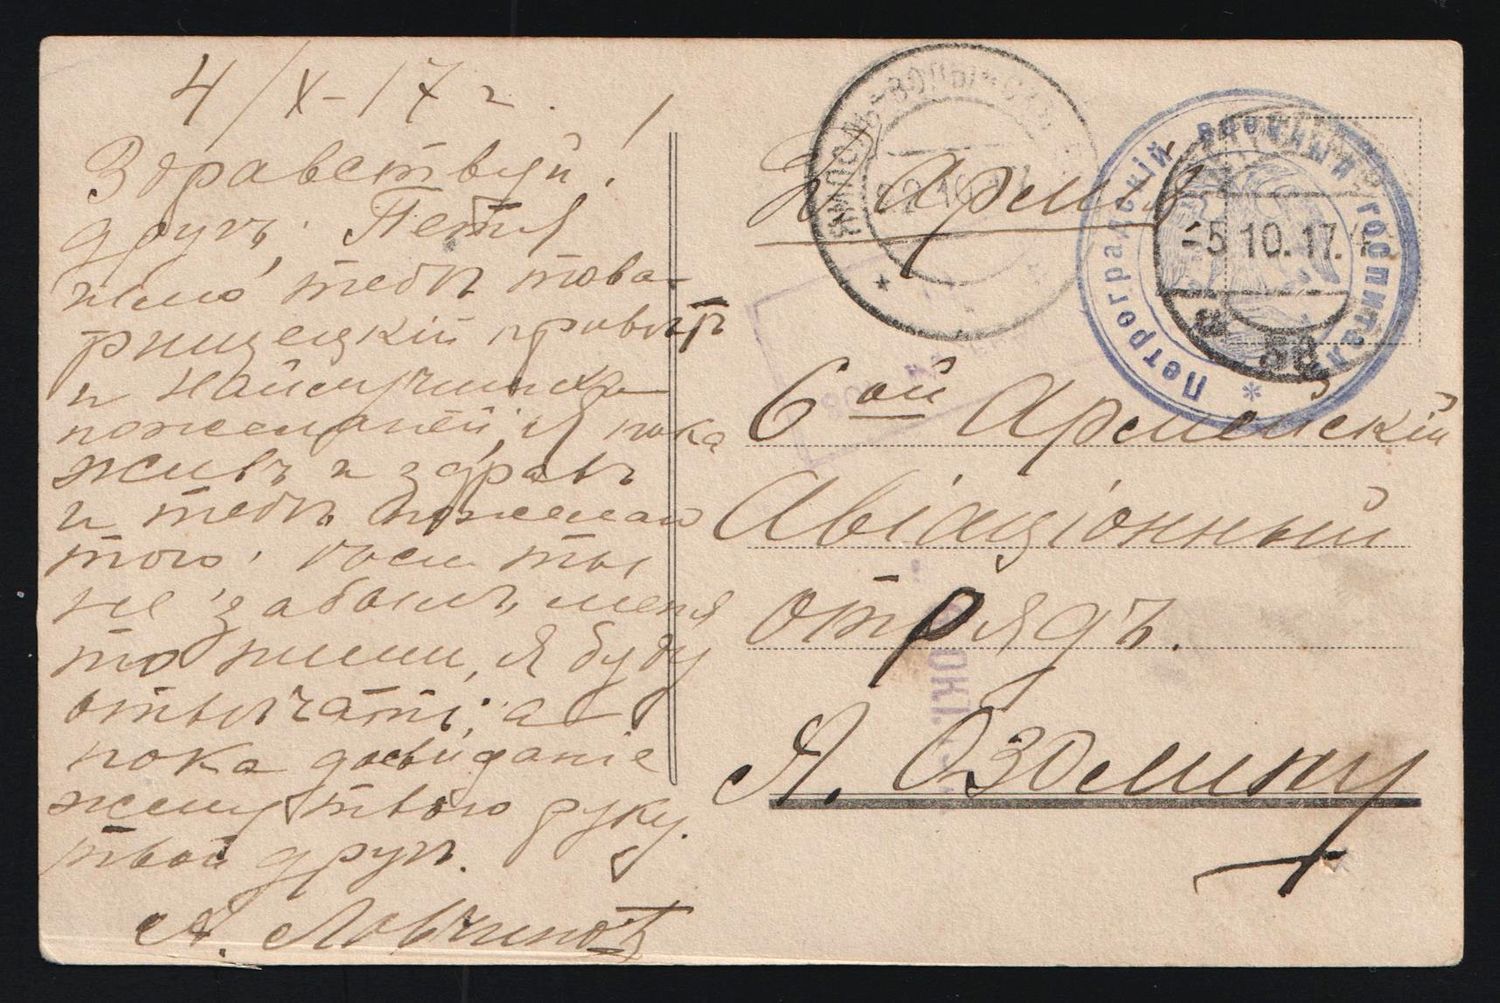 4/X-17 г.
Здравствуй!
другъ, Петя
шлю тебѣ това-
рищецкій привѣтъ
и
пожеланей, Я пока
живъ и здравъ
и тебѣ пожелаю
того. если ты
не забылъ, меня
то пиши, Я буду
отвѣчать, а
пока досвиданіе
жму твою руку.
твой другъ.
А. Ловчиновъ
В Армію
6ой Армейскій
Авіаціонный
отрядъ.
Я. Озолину
Петроградскій военный госпиталь
-5.10.17.
ВОЛЫНСКЪ